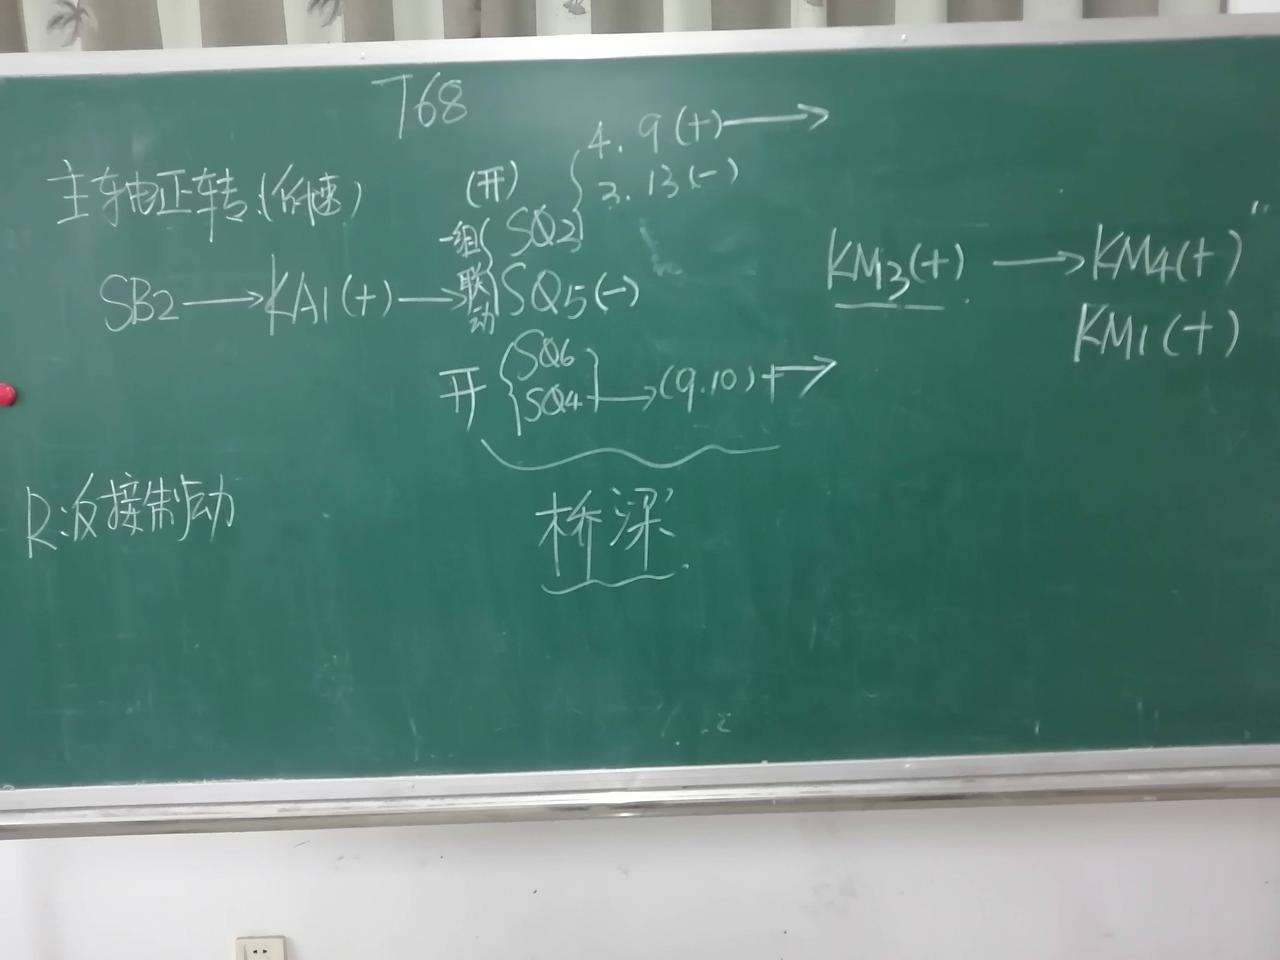 T68
4.9(+)→
主轴正转.(低速) (开) 3.13(-)
一组 SQ2
联动 SQ5(-)
SB2→KA1(+)→
KM3(+)→KM4(+)
KM1(+)
开 SQ6
SQ4→(9.10)+→
R:反接制动
桥梁